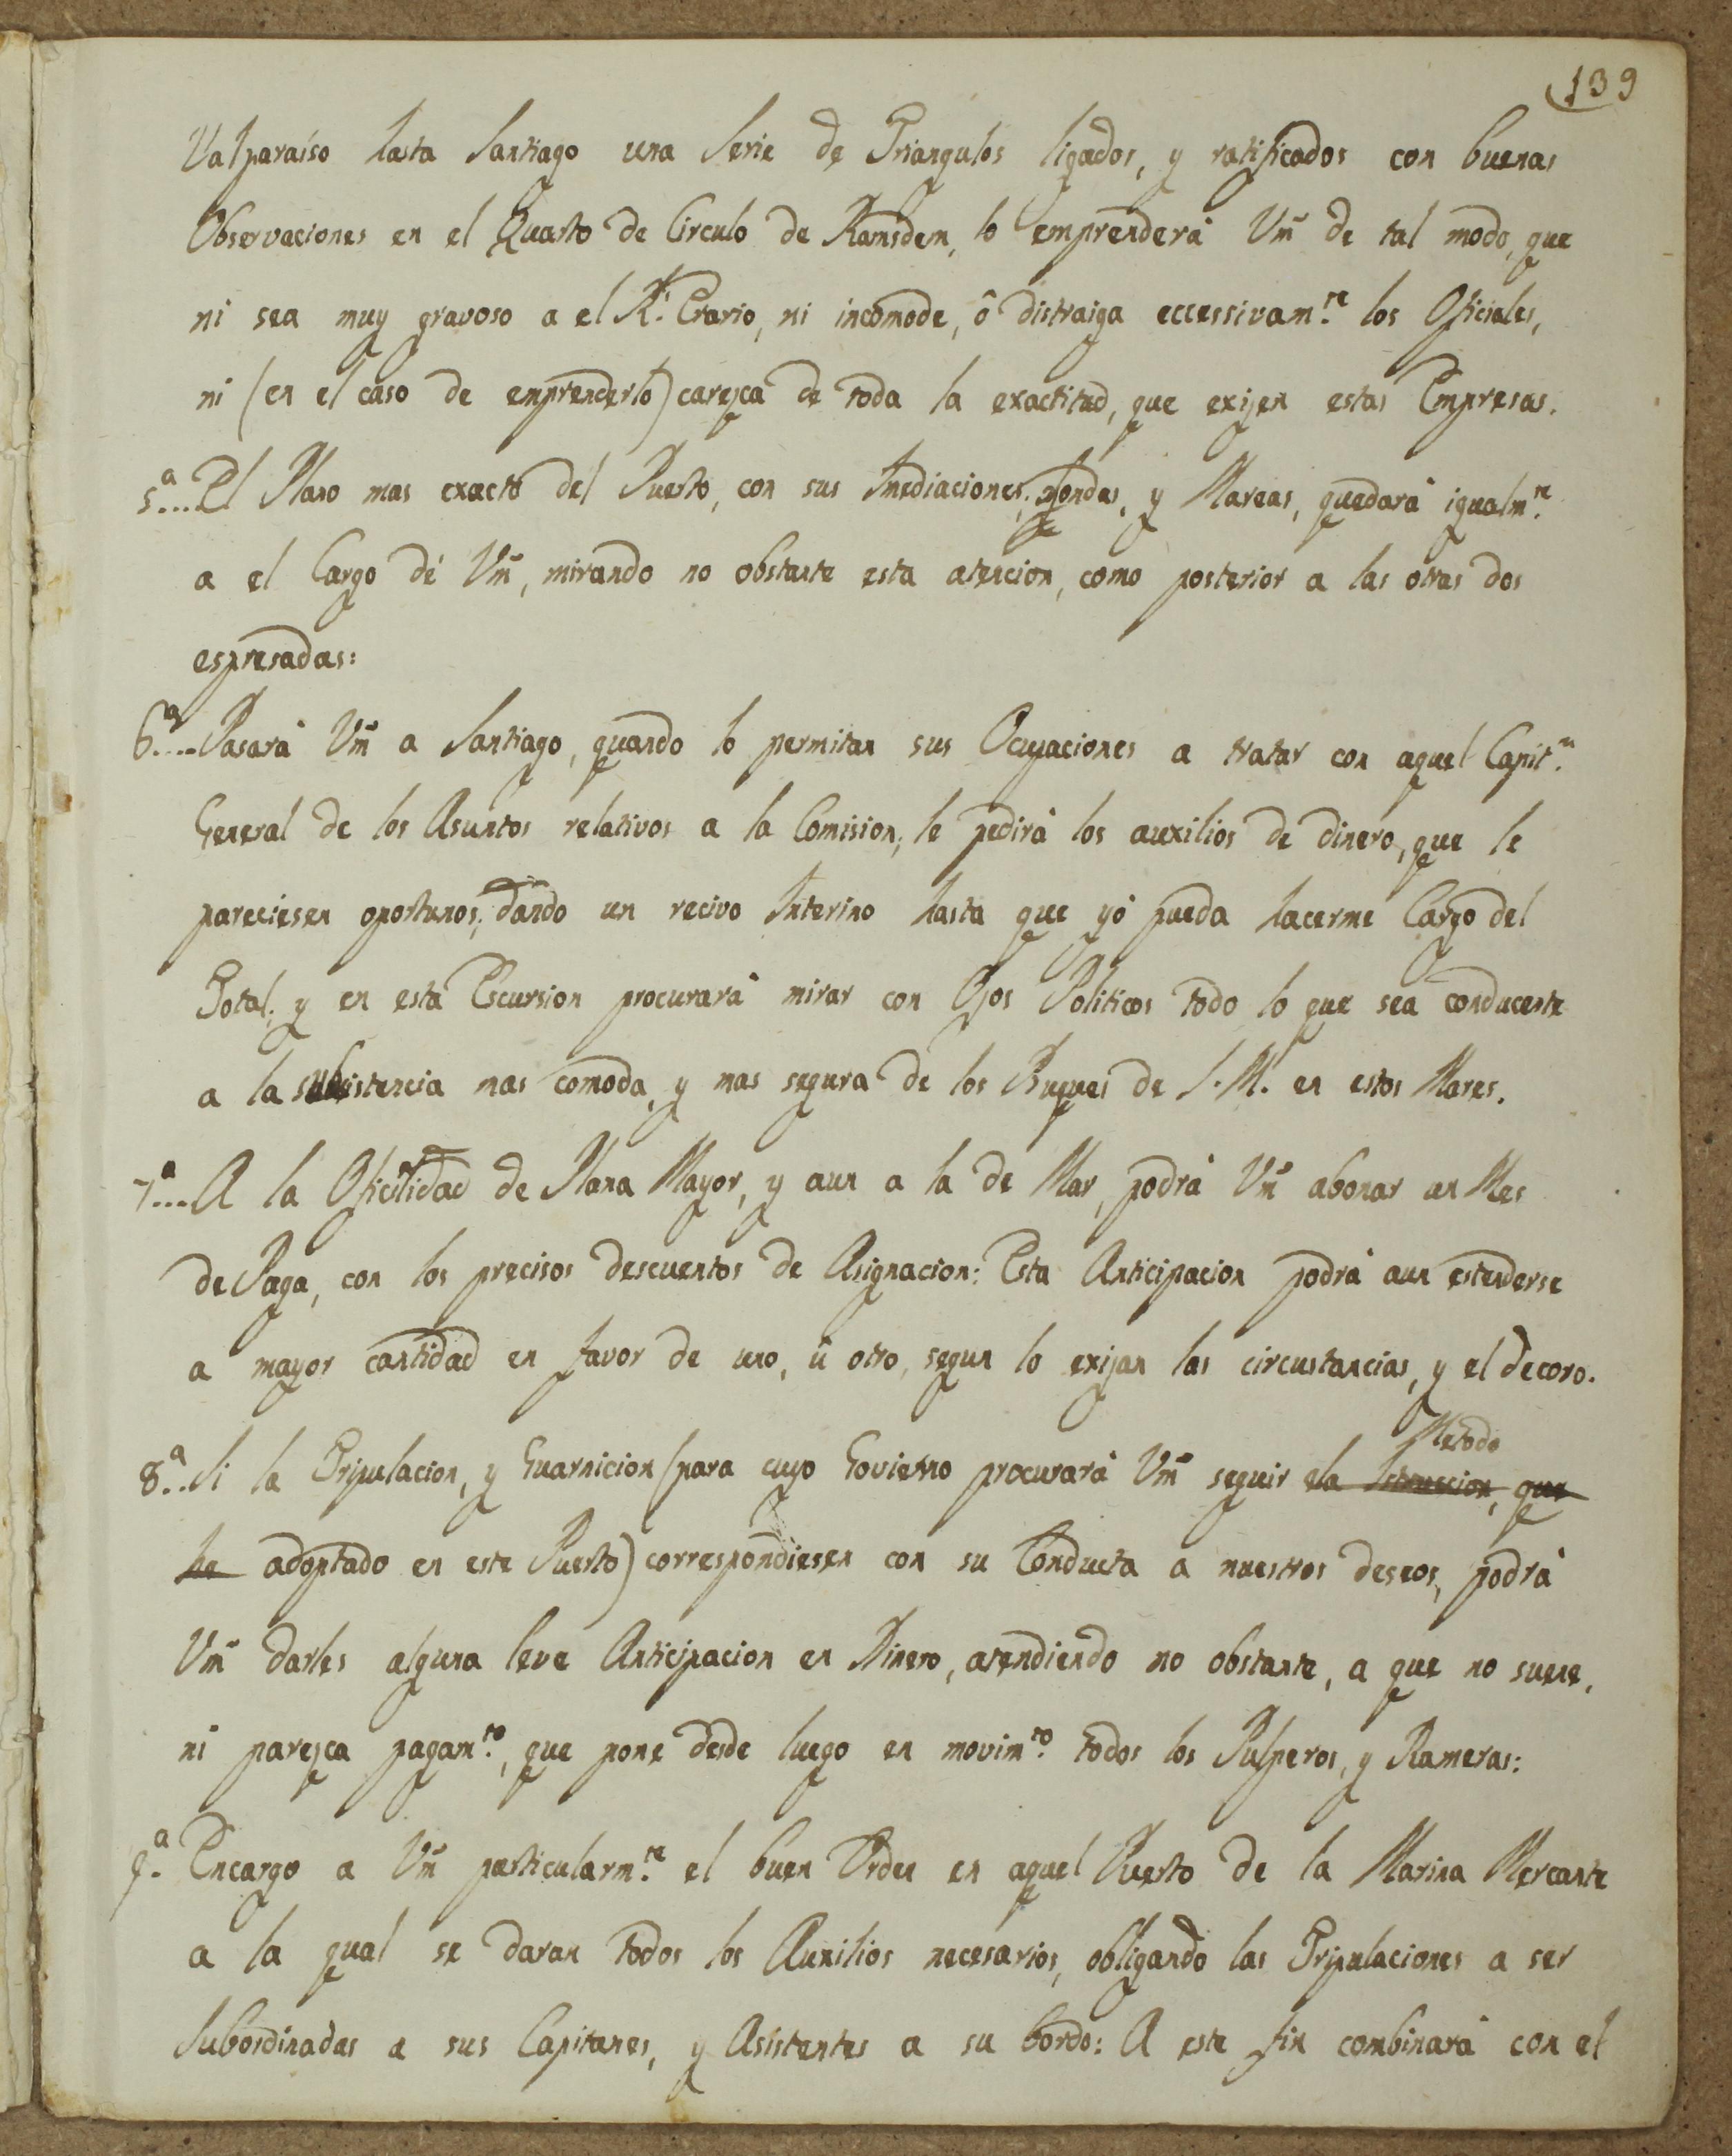 139
Valparaíso hasta Santiago una Serie de Triangulos ligados, y ratificados con buenas
Observaciones en el Quarto de Circulo de Ramsdem, lo emprenderá Vm̃ de tal modo, que
ni sea muy gravoso a el R.l Erario, ni incomode, ô distraiga eccessivam.te los Oficiales,
ni (en el caso de emprenderlo) caresca de toda la exactitud, que exijen estas Empresas.
5.a... El Plano mas exacto del Puerto, con sus Imediaciones, Sondas, y Mareas, quedará igualm.te
a el Cargo de Vm̃, mirando no obstante esta atencion, como posterior a las otras dos
espresadas:
6.a... Pasará Vm̃ a Santiago, quando lo permitan sus Ocupaciones a tratar con aquel Capit.n
General de los Asuntos relativos a la Comision; le pedirá los auxilios de dinero, que le
pareciesen oportunos; dando un recivo Interino hasta que yó pueda hacerme Cargo del
Total; y en esta Escursion procurará mirar con Ojos Politicos todo lo que sea conducente
a la subsistencia mas comoda, y mas segura de los Buques de S.M. en estos Mares.
7.a... A la Oficialidad de Plana Mayor, y aun a la de Mar, podrá Vm̃ abonar un Mes
de Paga, con los precisos descuentos de Asignacion: Esta Anticipacion podrá aun estenderse
a mayor cantidad en favor de uno, ú otro, segun lo exijan las circustancias, y el decoro.
Metodo
8.a.. Si la Tripulacion, y Guarnicion (para cuyo Govierno procurará Vm̃ seguir ela Instruccion, que
he adoptado en este Puerto) correspondiesen con su Conducta a nuestros deseos, podrá
Vm̃ darles alguna leve Anticipacion en Dinero, atendiendo no obstante, a que no suene,
ni paresca pagam.to, que pone desde luego en movim.to todos los Pulperos, y Rameras:
9.a. Encargo a Vm̃ particularm.te el buen Orden en aquel Puerto de la Marina Mercante
a la qual se daran todos los Auxilios necesarios, obligando las Tripulaciones a ser
Subordinadas a sus Capitanes, y Asistentes a su bordo: A este fin combinará con el